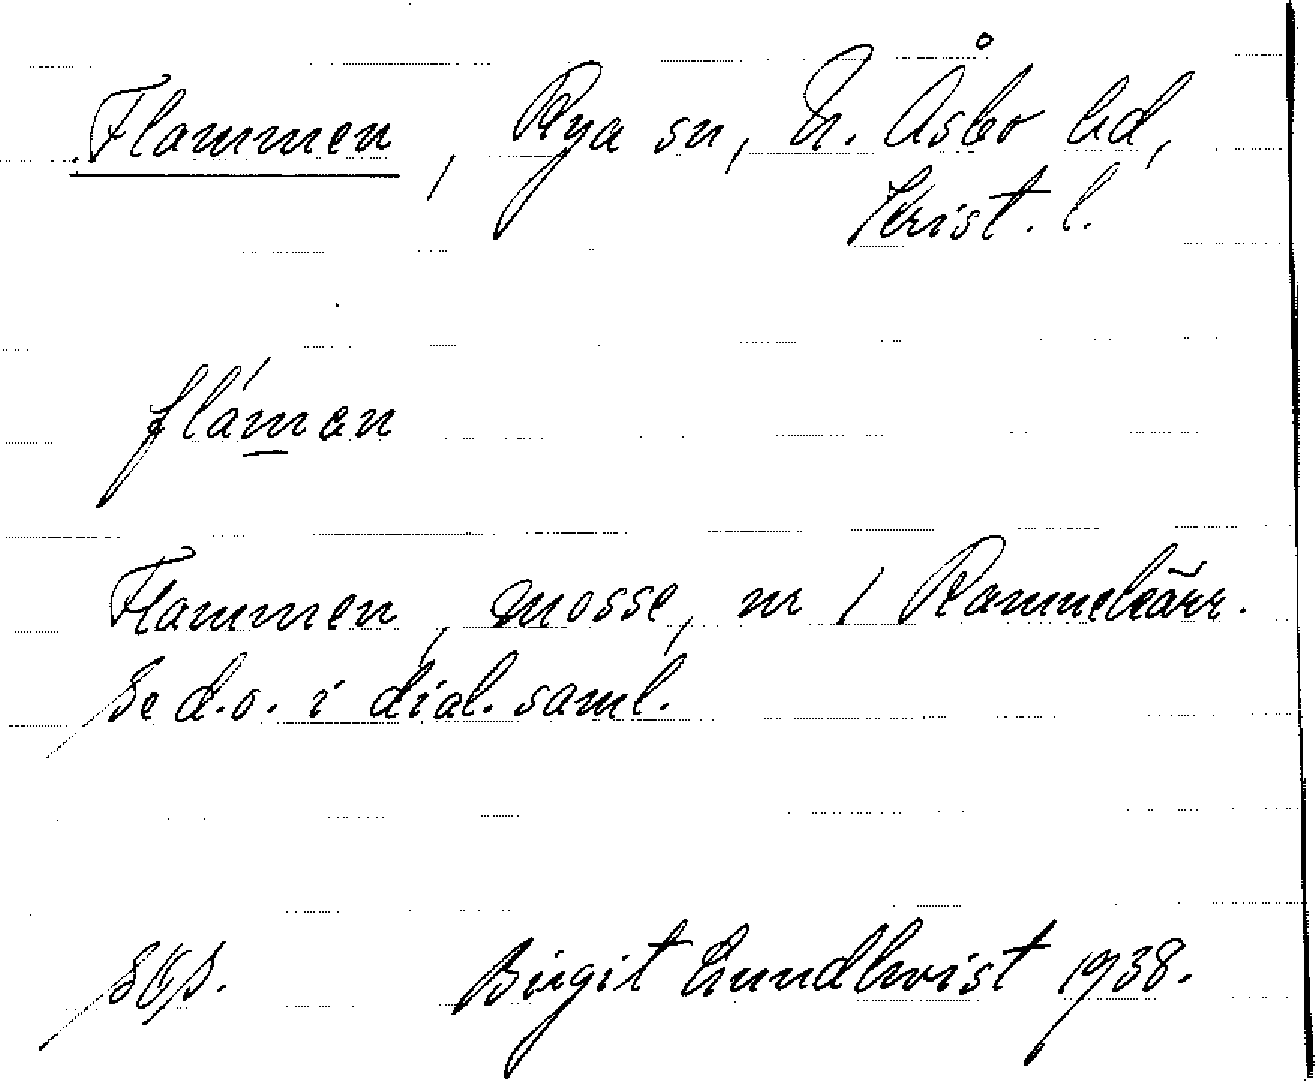 Flammen, Rya sn, N. Åsbo hd,
Krist. l.
fláman
Flammen, mosse, nr 1 Rammekärr.
Se d.o. i dial. saml.
Birgit Lundkvist 1938.